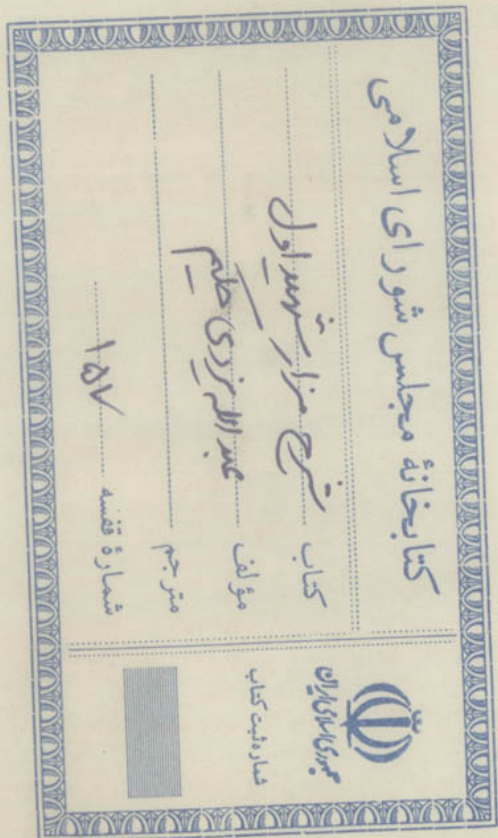 کتابخانهٔ مجلس شورای اسلامی
کتاب شرح مزار شهید اول
مؤلف عبدالله یزدی حکیم
مترجم
شمارهٔ قفسه ۱۵۷
جمهوری اسلامی ایران
شماره ثبت کتاب